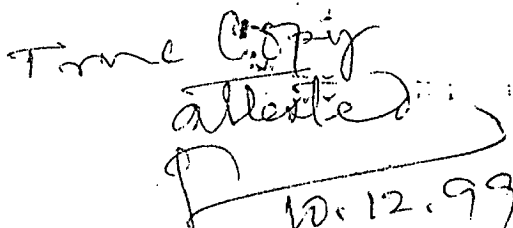 True Copy
attested
10.12.99